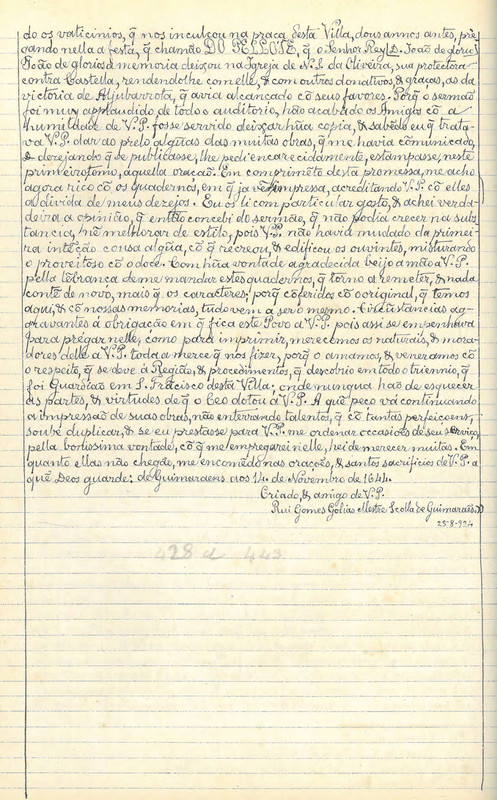 do os vaticinios, q̃ nos inculçou na praça desta Villa, dous annos antes, pre
gando nella a festa, q̃ chamão DO PELLOTE, q̃ o Senhor Rey D. João de glorio
João de gloriosa memoria deixou na Igreja de N. S. da Oliveira, sua protectora
contra Castella, rendendolhe com elle, & com outros donativos, & graças, as da
victoria de Aljubarrota, q̃ avia alcançado cõ seus favores. Porq̃ o sermão
foi muy applaudido de todo o auditorio, não acabado os Amigos cõ a
humildade de V. P. fosse servido deixar hũa copia, & sabedo eu q̃ trata-
va V. P. dar ao prelo algũas das muitas obras, q̃ me havia comunicado,
& dezejando q̃ se publicasse, lhe pedi encarecidamente, estampasse, neste
primeiro tomo, aquella oração. Em comprimẽto desta promessa, me acho
agora rico cõ os quadernos, em q̃ ja vẽ impressa, acreditando V. P. cõ elles
a divida de meus dezejos. Eu os li com particular gosto, & achei verda-
deira a opinião, q̃ então concebi do sermão, q̃ não podia crecer na subs
tancia, nẽ melhorar de estilo, pois V. P. não havia mudado da primei-
ra intẽção cousa algũa, cõ q̃ recreou, & edificou os ouvintes, misturando
o proveitoso cõ o doce. Com hũa vontade agradecida beijo a mão a V. P.
pella lẽbrança de me mandar estes quadernos, q̃ torno a remeter, & nada
contẽ de novo, mais q̃ os caracteres; porq̃ cõferidos cõ o original, q̃ temos
aqui, & cõ nossas memorias, tudo vem a ser o mesmo. Circũstancias ag-
gravantes á obrigação em q̃ fica este Povo a V. P. pois assi se empenhava
para prégar nelle, como para imprimir, merecemos os naturais, & mora-
dores delle a V. P. toda a merce q̃ nos fizer, porq̃ o amamos, & veneramos cõ
o respeito, q̃ se deve à Religião, & procedimentos, q̃ descobrio em todo o triennio, q̃
foi Guardião em S. Frãcisco desta Villa; onde nunqua hão de esquecer
as partes, & virtudes de q̃ o Ceo dotou a V. P. A quẽ peço va continuando
a impressão de suas obras, não enterrando talentos, q̃ cõ tantas perfeiçoens,
soube duplicar, & se eu prestasse para V. P. me ordenar occasiões de seu serviço,
pella bonissima vontade, cõ q̃ me empregarei nelle, hei de merecer muitas. Em
quanto ellas não chegão, me encomẽdo nas orações, & santos sacrificios de V. P. a
quẽ Deos guarde: de Guimaraens aos 14. de Novembro de 1644.
Criado, & amigo de V. P.
Rui Gomes Golias Mestre Scolla de Guimarães.
25-8-924
428 a 443